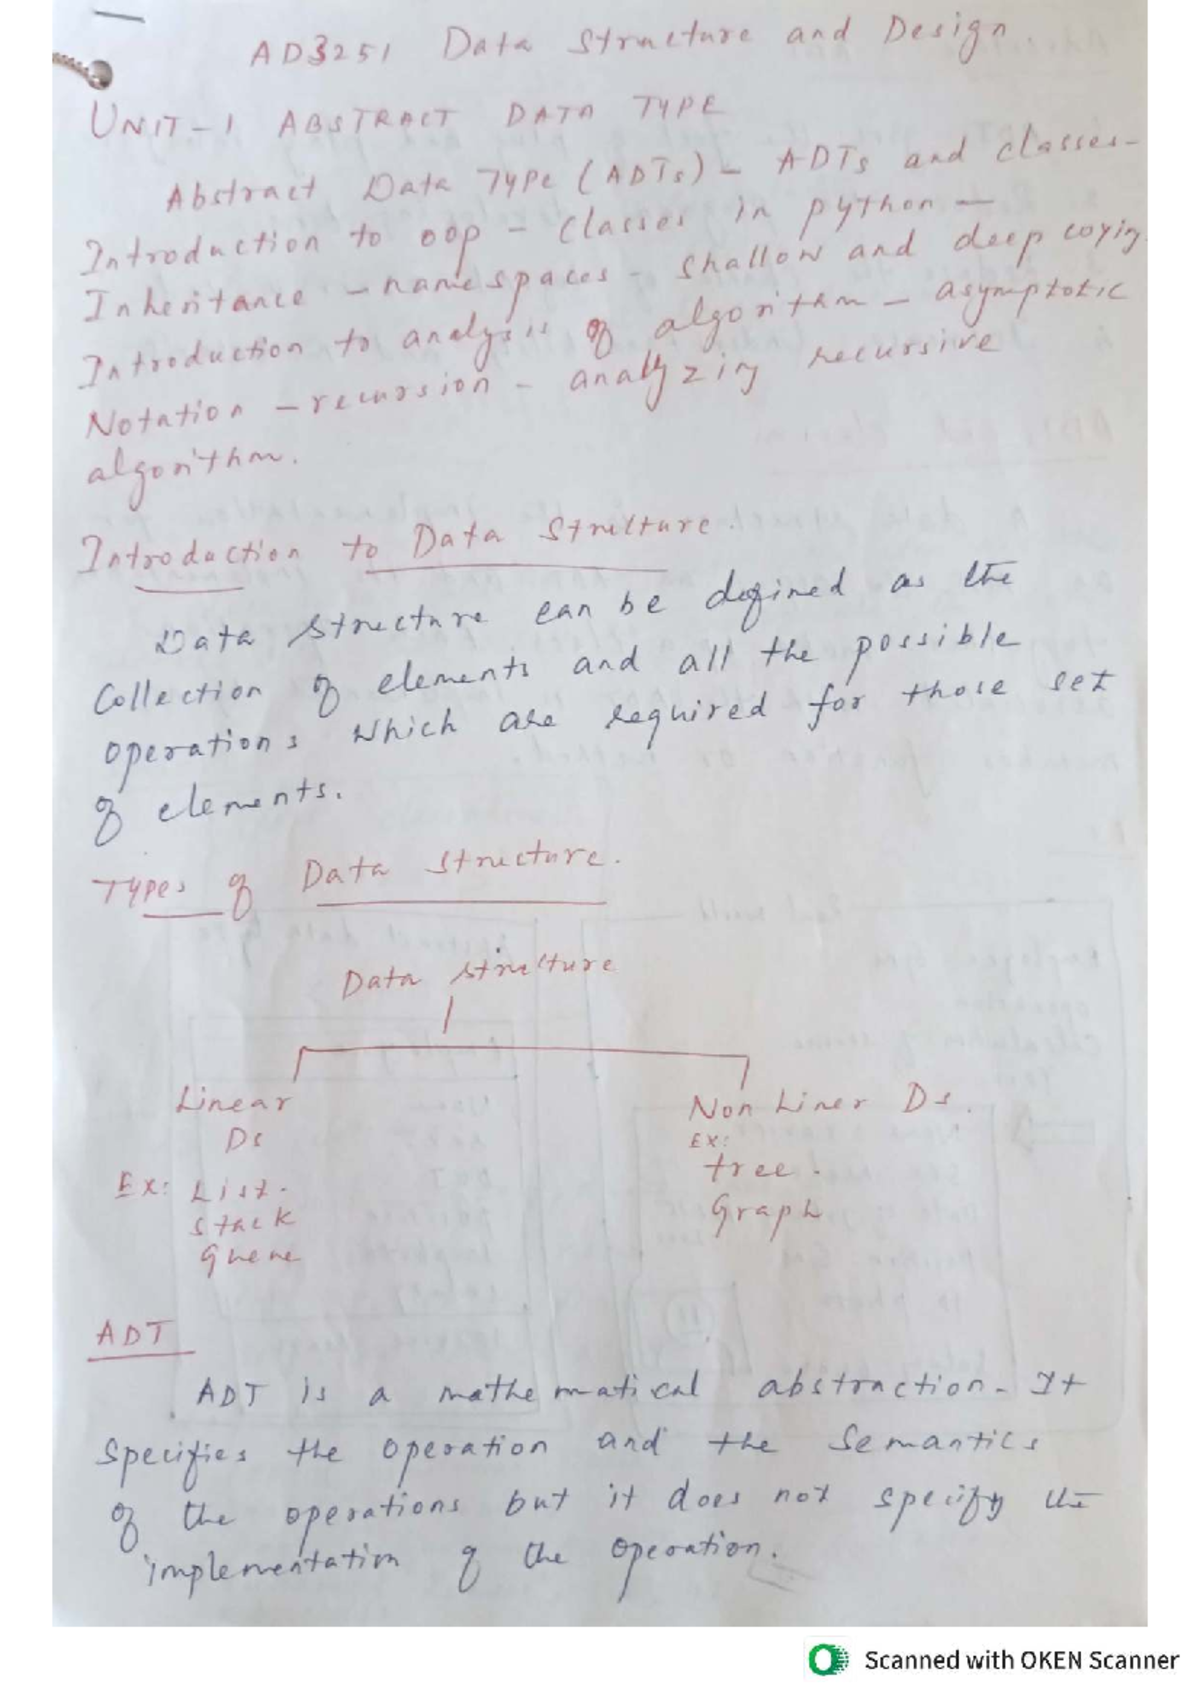 AD3251 Data Structure and Design.
UNIT-1 ABSTRACT DATA TYPE
Abstract Data Type (ADTs) - ADTs and classes-
Introduction to oop - classes in python -
Inheritance - namespaces - shallow and deep coying
Introduction to analysis of algorithm - asymptotic
Notation - recursion - analyzing recursive
algorithm.
Introduction to Data Structure.
Data structure can be defined as the
Collection of elements and all the possible
operations which are required for those set
of elements.
Types of Data Structure.
Data structure
Linear
Ds
Ex: List.
Stack
Queue
Non Liner Ds.
Ex:
tree.
Graph
ADT
ADT is a mathematical abstraction. It
specifies the operation and the semantics
of the operations but it does not specify the
implementation of the operation.
Scanned with OKEN Scanner